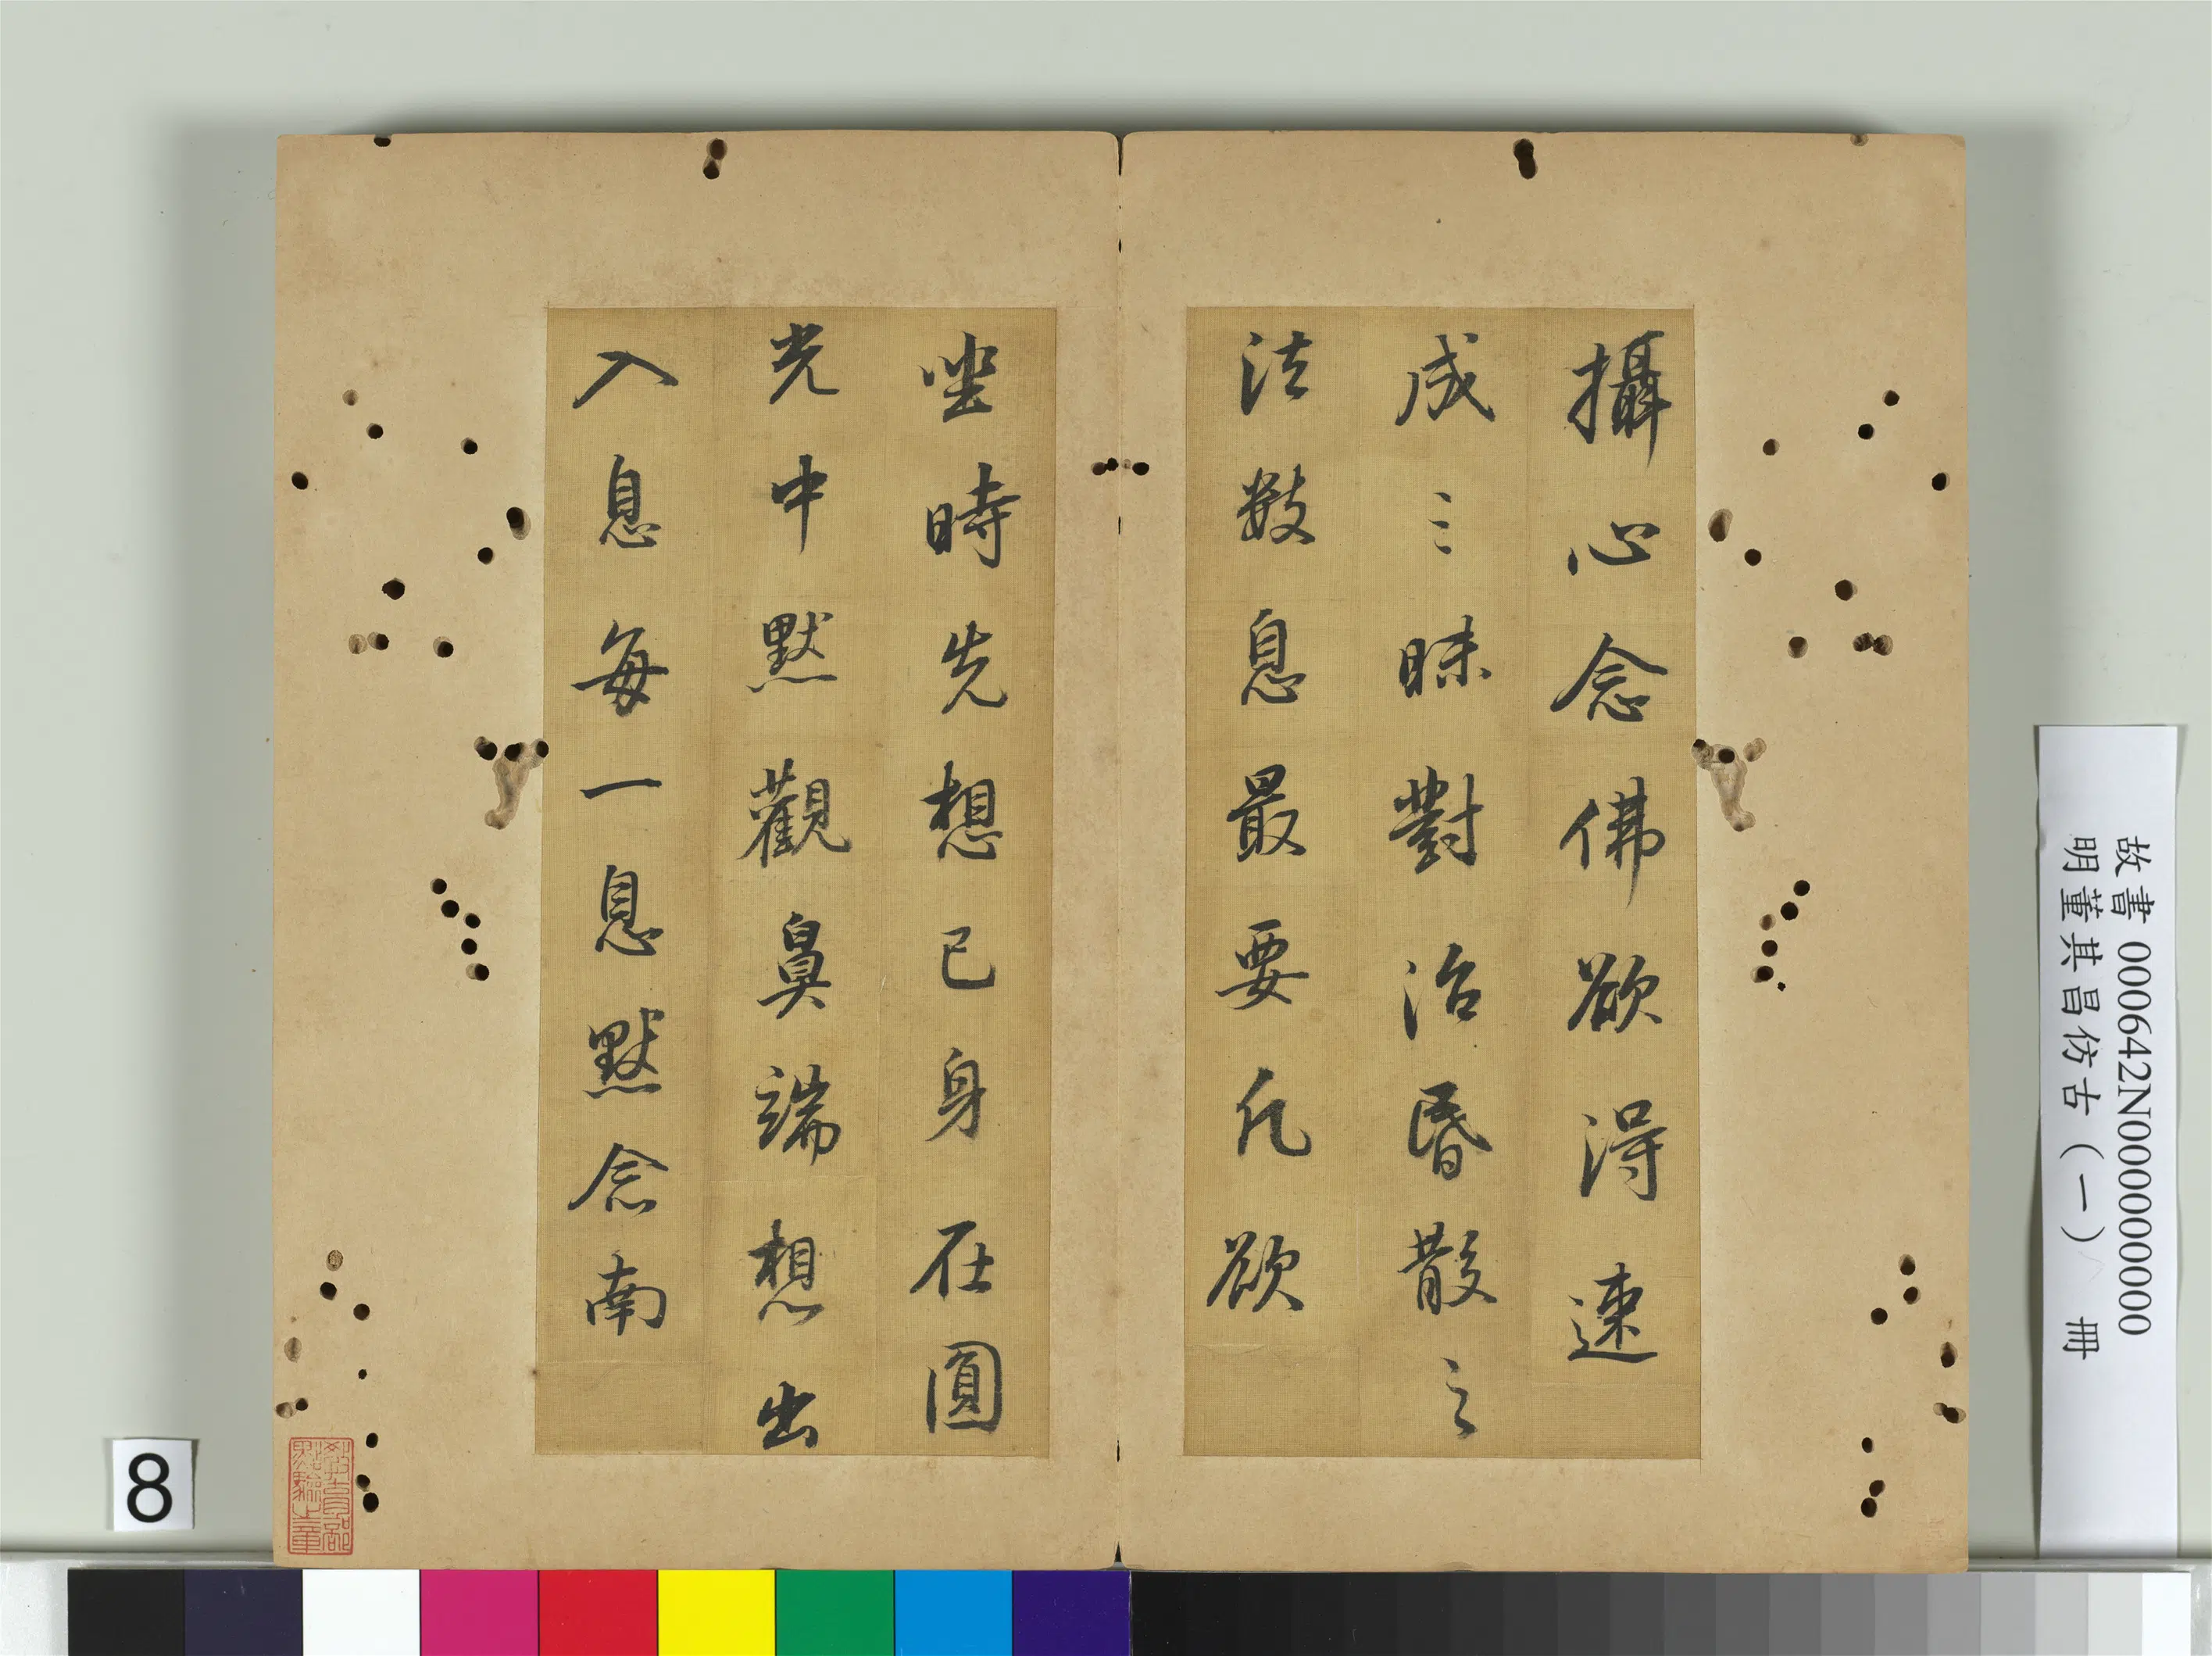 攝心念佛欲得速
成三昧對治昏散之
法數息最要凡欲
坐時先想己身在圓
光中默觀鼻端想出
入息每一息默念南
教育部
點驗之章
故書 000642N000000000
明董其昌仿古(一) 冊
8